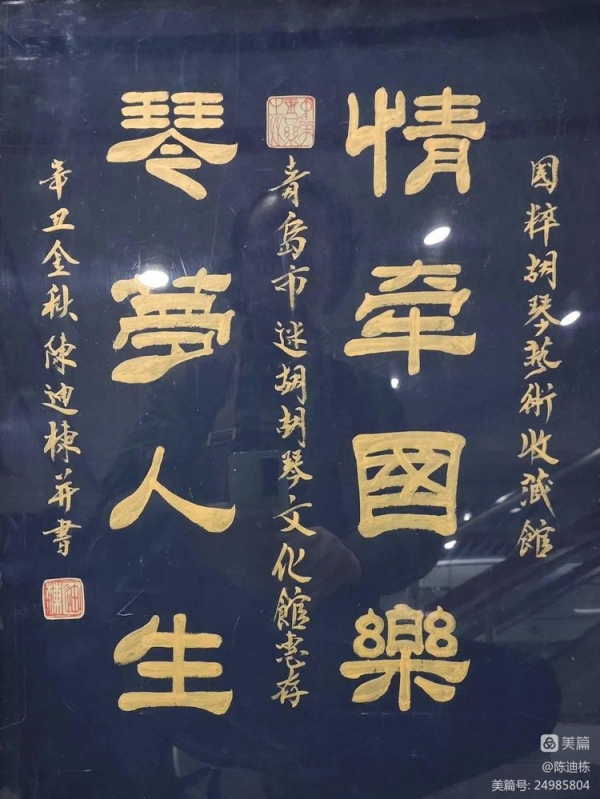 國粹胡琴藝術收藏館
情牽國樂
青島市迷胡胡琴文化館惠存
琴夢人生
辛丑金秋陳迪棟并書
美篇
@陈迪栋
美篇号: 24985804